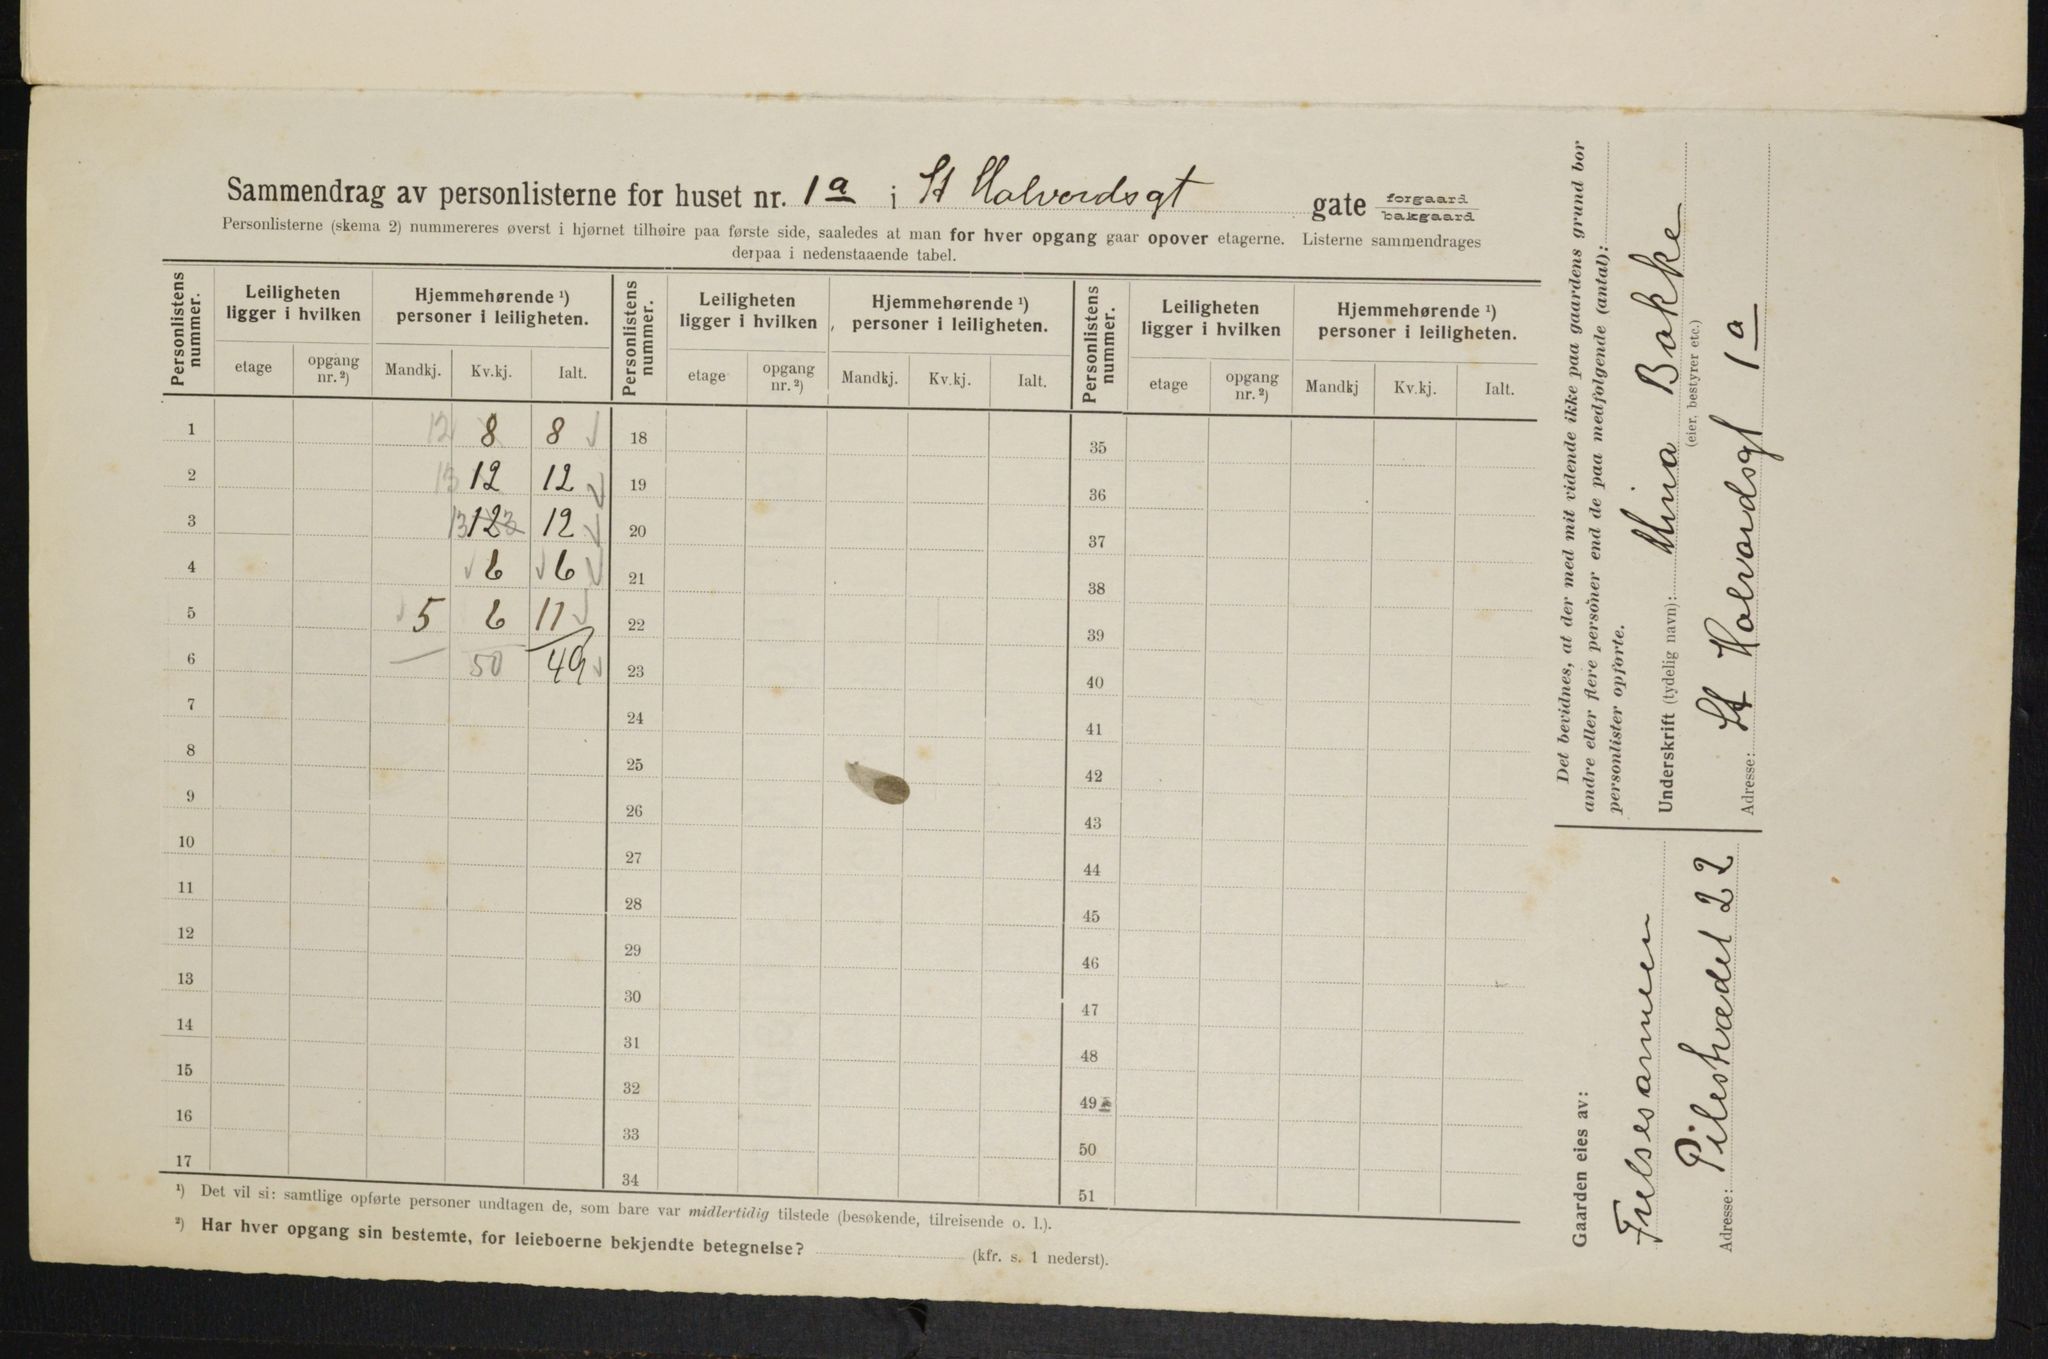 Sammendrag av personlisterne for huset nr. 1a i St Halvordsgt gate forgaard bakgaard
Personlisterne (skema 2) nummereres øverst i hjørnet tilhøire paa første side, saaledes at man for hver opgang gaar opover etagerne. Listerne sammendrages
derpaa i nedenstaaende tabel.
Personlistens nummer. Leiligheten ligger i hvilken Hjemmehørende ¹) personer i leiligheten. Personlistens nummer. Leiligheten ligger i hvilken Hjemmehørende ¹) personer i leiligheten. Personlistens nummer. Leiligheten ligger i hvilken Hjemmehørende ¹) personer i leiligheten.
etage opgang nr. ²) Mandkj. Kv.kj. Ialt. etage opgang nr. ²) Mandkj. Kv.kj. Ialt. etage opgang nr. ²) Mandkj Kv.kj. Ialt.
1 12 8 8 18 35
2 13 12 12 19 36
3 13 12 3 12 20 37
4 6 6 21 38
5 5 6 11 22 39
6 — 50 49 23 40
7 24 41
8 25 42
9 26 43
10 27 44
11 28 45
12 29 46
13 30 47
14 31 48
15 32 49
16 33 50
17 34 51
¹) Det vil si: samtlige opførte personer undtagen de, som bare var midlertidig tilstede (besøkende, tilreisende o. l.).
²) Har hver opgang sin bestemte, for leieboerne bekjendte betegnelse? (kfr. s. 1 nederst).
Det bevidnes, at der med mit vidende ikke paa gaardens grund bor
andre eller flere personer end de paa medfølgende (antal):
personlister opførte.
Underskrift (tydelig navn): Mina Bakke
(eier, bestyrer etc.)
Adresse: St Halvordsgt 1a
Gaarden eies av:
Frelsesarmeen
Adresse: Pilestrædet 22